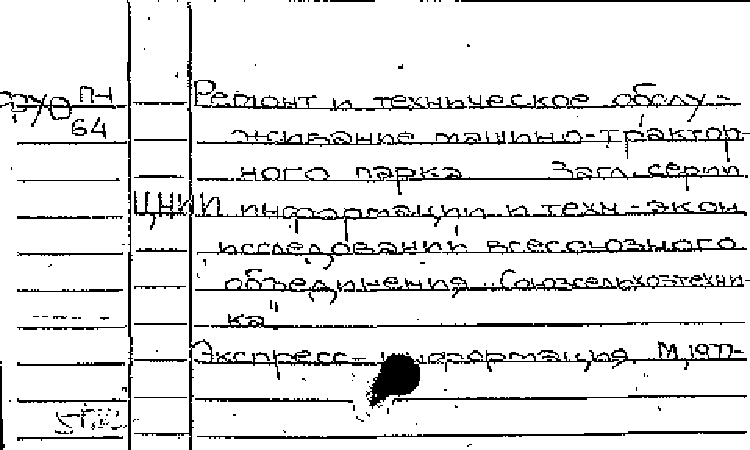 ПН
64
Ремонт и техническое обслу-
живание машинно-трактор
ного парка Загл. серии
ЦНИИ информации и техн-экон
исследований всесоюзного
объединения „Союзсельхозтехни-
ка"
Экспресс-информация М, 1977-